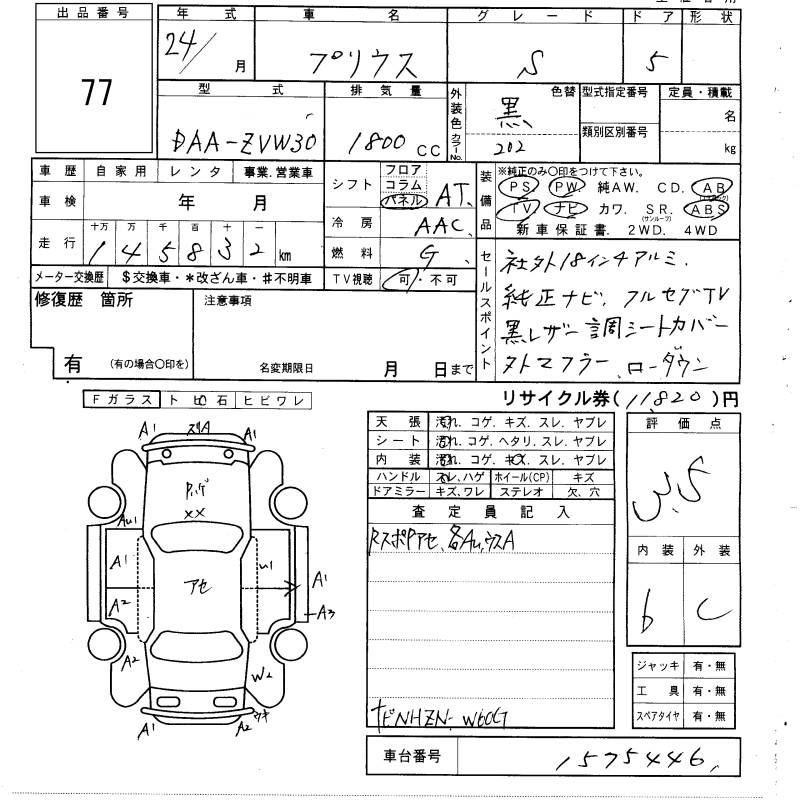 出品番号
77
年式 車名 グレード ドア 形状
24/ 月 プリウス S 5
型式 排気量 外装色 色替 型式指定番号 定員・積載
DAA-ZVW30 1800 CC カラーNo. 黒 202 類別区別番号 名 kg
車歴 自家用 レンタ 事業.営業車
車検 年 月
走行 十万 万 千 百 十 一
1 4 5 8 3 2 km
メーター交換歴 $交換車・*改ざん車・#不明車
シフト フロア コラム パネル AT.
冷房 AAC
燃料 G
TV視聴 可・不可
装備品 ※純正のみ○印をつけて下さい。
PS PW 純AW. CD. AB
TV ナビ カワ. SR.(サンルーフ) ABS
新車保証書. 2WD. 4WD
セールスポイント
社外18インチアルミ.
純正ナビ. フルセグTV
黒レザー調シートカバー
外マフラー、ローダウン
修復歴 箇所
有 (有の場合○印を)
注意事項
名変期限日 月 日まで
リサイクル券(11,820)円
Fガラス トビ石 ヒビワレ
天張 汚れ.コゲ.キズ.スレ.ヤブレ
シート 汚れ.コゲ.ヘタリ.スレ.ヤブレ
内装 汚れ.コゲ.キズ.スレ.ヤブレ
ハンドル スレ,ハゲ ホイール(CP) キズ
ドアミラー キズ,ワレ ステレオ 欠、穴
査定員記入
RスポPアセ、各Au,ウスA
ナビNHZN-W60G
評価点
3.5
内装 外装
b C
ジャッキ 有・無
工具 有・無
スペアタイヤ 有・無
車台番号 1575446
A1 ズリA A1
P.ハゲ
××
Au1
A1 アセ U1 A1
A2 A3
A2 W2
A1 ウキ A2